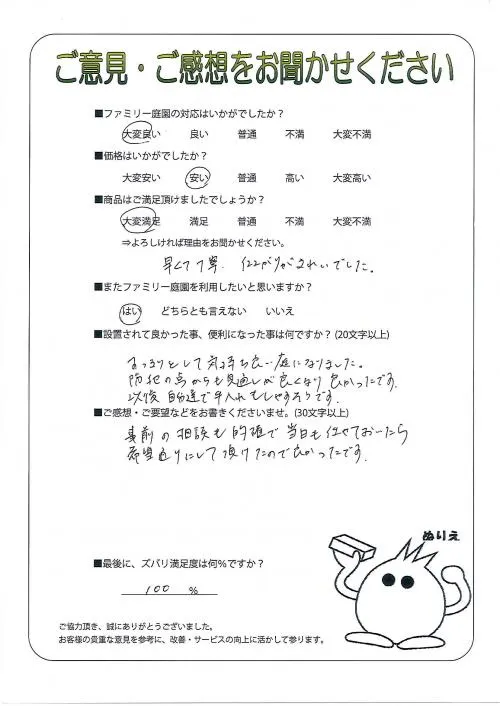 ご意見・ご感想をお聞かせください
■ファミリー庭園の対応はいかがでしたか？
大変良い 良い 普通 不満 大変不満
■価格はいかがでしたか？
大変安い 安い 普通 高い 大変高い
■商品はご満足頂けましたでしょうか？
大変満足 満足 普通 不満 大変不満
⇒よろしければ理由をお聞かせください。
早くて丁寧 仕上がりがきれいでした。
■またファミリー庭園を利用したいと思いますか？
はい どちらとも言えない いいえ
■設置されて良かった事、便利になった事は何ですか？(20文字以上)
すっきりとして気持ち良い庭になりました。
防犯の点からも見通しが良くなり良かったです。
以後自分達で手入れもしやすそうです。
■ご感想・ご要望などをお書きくださいませ。(30文字以上)
事前の相談も的確で当日も任せておいたら
希望通りにして頂けたので良かったです。
ぬりえ
■最後に、ズバリ満足度は何％ですか？
100 %
ご協力頂き、誠にありがとうございました。
お客様の貴重な意見を参考に、改善・サービスの向上に活かして参ります。